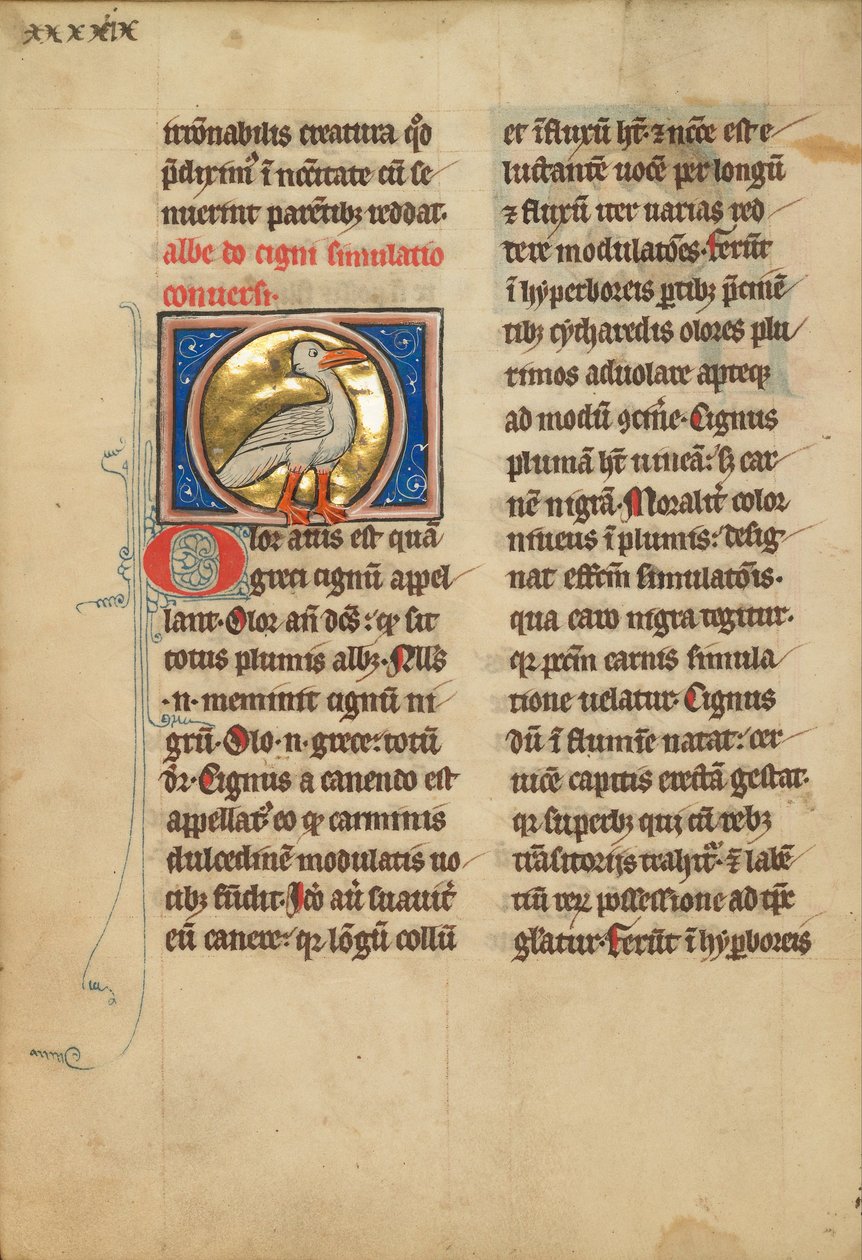 xxxxix
irrōnabilis creatura qd̊
p̄dixim᷒ ī nccītate cū se
nuerint parētibꝫ reddat·
albe do cigni simulatio
conuersi·
Olor auis est quā
greci cignū appel
lant· Olor aūt dc̄s: ꝙ sit
totus plumis albꝫ· Null᷒s
·n· meminit cignū ni
grū· Olo ·n· grece: totū
dr̄· Cignus a canendo est
appellat᷒ eo ꝙ carminis
dulcedinē modulatis uo
cibꝫ fūdit· Ico aūt suauit̄
eū canere: qꝛ lōgū collū
et īfluxū ht̄· ⁊ nccē est e
luctantē uocē per longū
⁊ fluxū iter uarias red
dere modulatōes· Ferūt
ī hyperboreis ꝑtibꝫ p̄cinē
tibꝫ cytharedis olores plu
rimos aduolare apteqꝫ
ad modū ꝯcin̄e· Cignus
plumā ht̄ niueā: sꝫ car
nē nigrā· Moralit̄ color
niueus ī plumis: desig
nat effc̄m simulatōis·
qua caro nigra tegitur·
qꝛ pcc̄m carnis simula
tione uelatur· Cignus
dū ī flumīe natat: cer
uicē capitis erectā gestat·
qꝛ superbꝫ qui cū rebꝫ
trāsitorijs trahit᷒· ⁊ labē
tiū reꝝ possessione ad tp̄c
gl̄atur· Ferūt ī hyꝑboreis